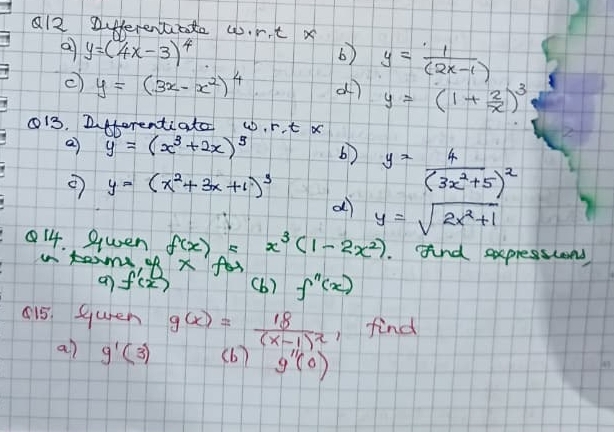 Q12 Differentiate w.r.t x
a) y=(4x-3)^4 b) y = 1/(2x-1)
c) y = (3x-x²)^4 d) y = (1+2/x)^3
Q13. Differentiate w.r.t x
a) y = (x³+2x)^5 b) y = 4/(3x²+5)²
c) y = (x²+3x+1)^3 d) y = √(2x²+1)
Q14. Given f(x) = x³(1-2x²). Find expressions,
in terms of x for
a) f'(x) (b) f"(x)
Q15. Given g(x) = 18/(x-1)², find
a) g'(3) (b) g"(0)